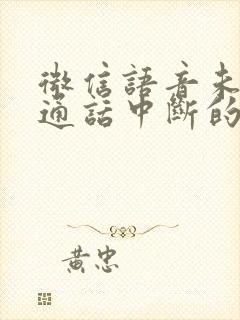 微信語音未
通話中斷的
黃忠